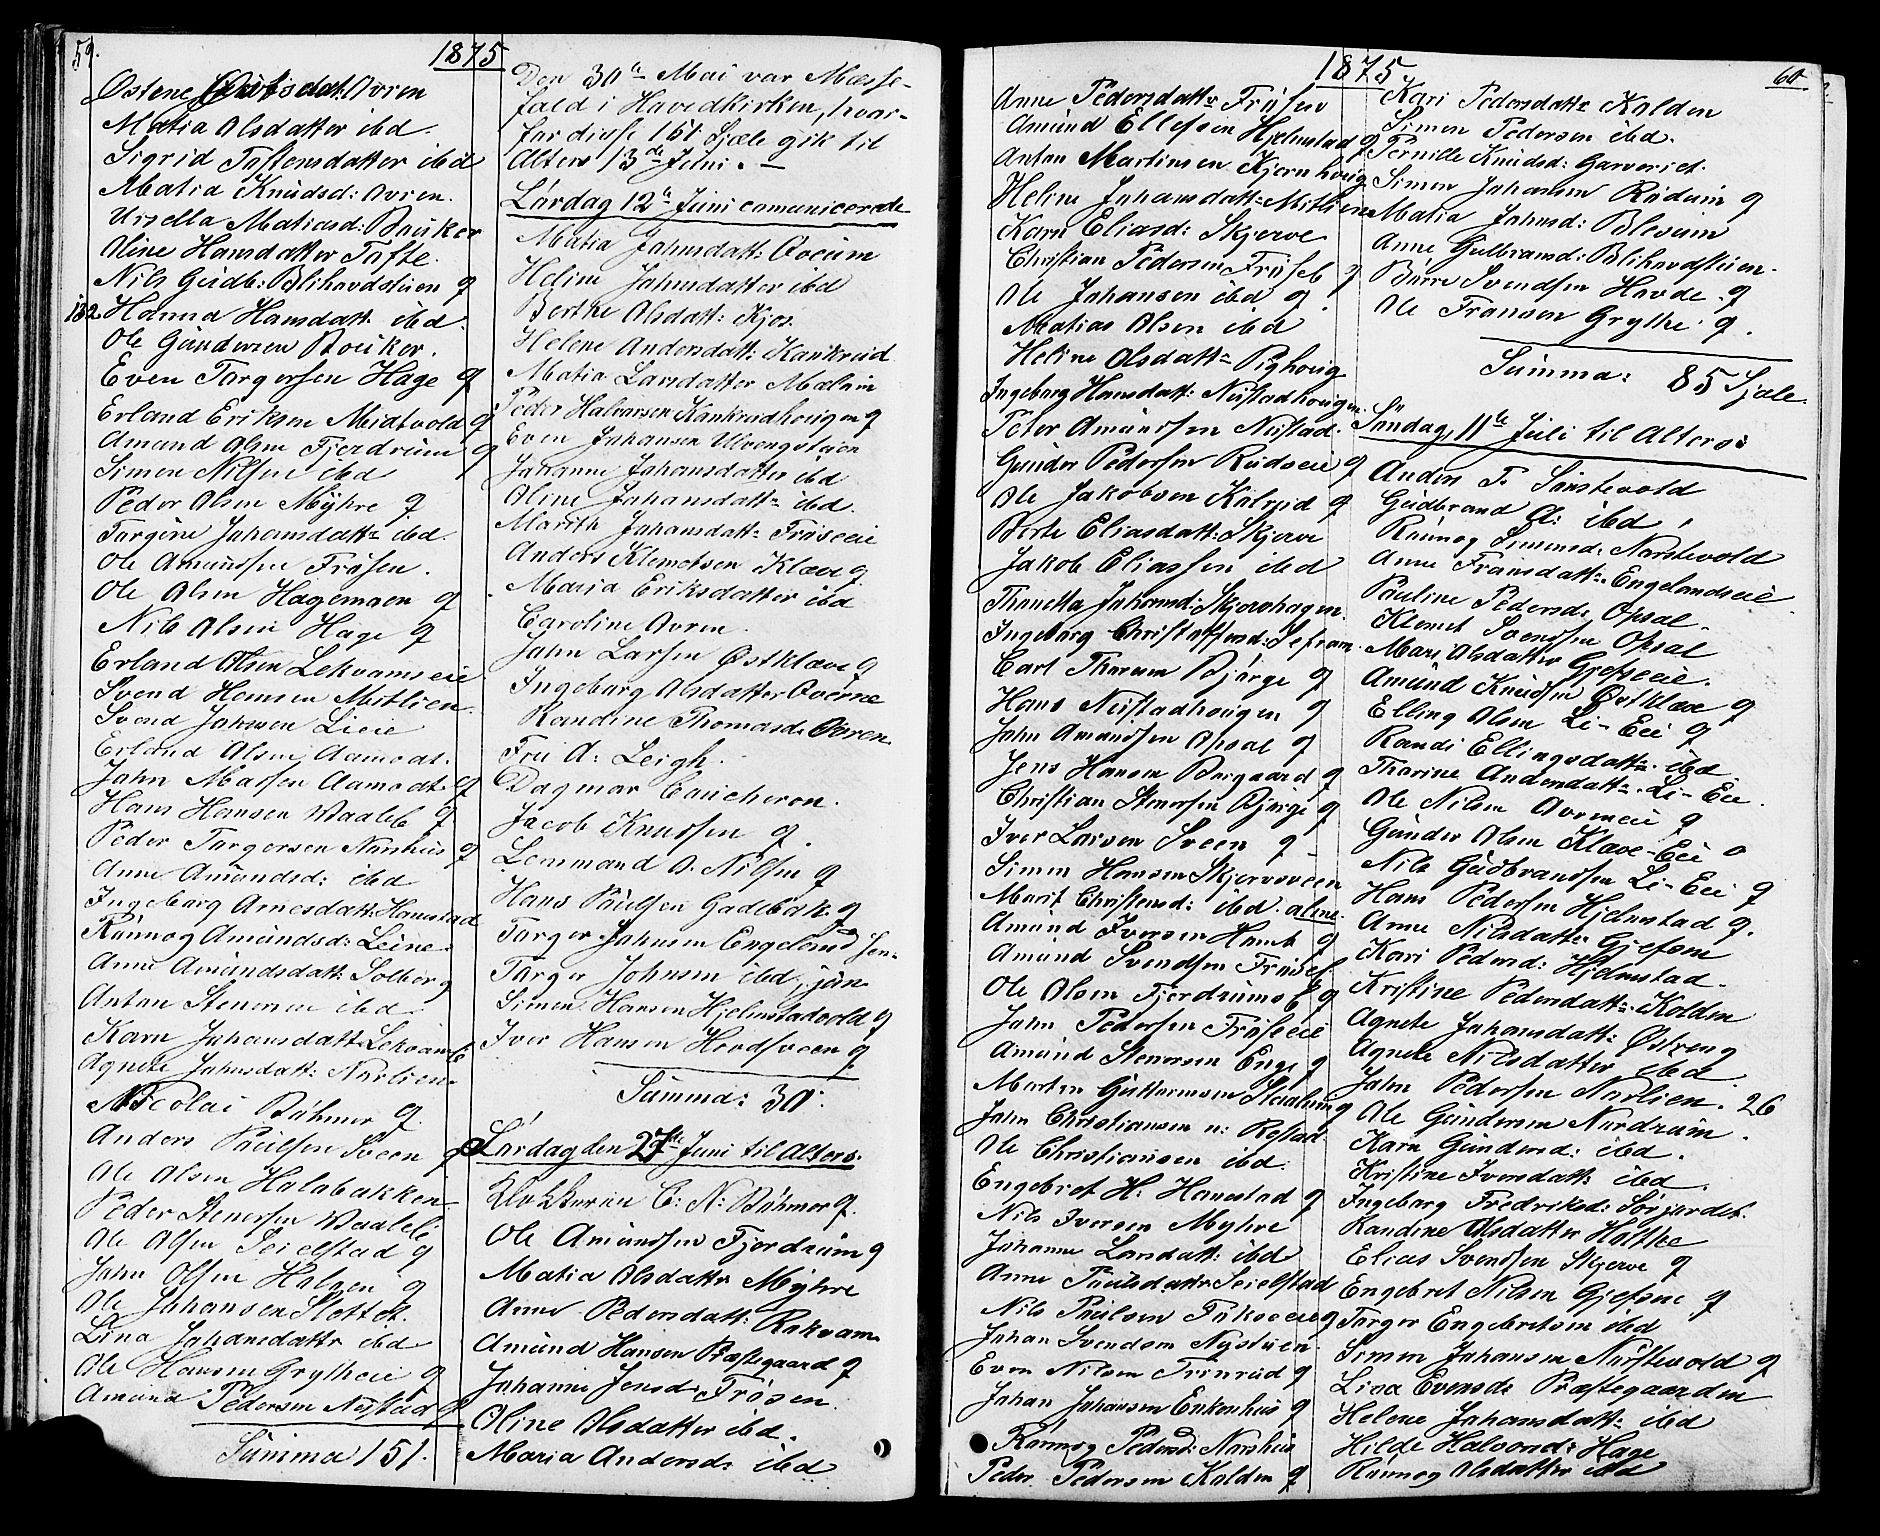 59.
1875
Østene Ovren
Matia Olsdatter ibd.
Sigrid Tostensdatter ibd
Matia Knudsd: Ovren.
Ursella Matiasd: Bruker
Oline Hansdatter Tofte.
Nils Gudb: Blihovdstuen q
132 Hanna Hansdatt: ibd.
Ole Gundersen Bruker.
Even Torgersen Hage q
Erland Eriksen Midtvold q
Amund Olsen Fjerdrum q
Simen Nilsen ibd
Peder Olsen Myhre q
Torgine Johansdatt: ibd
Ole Amundsen Frøsen.
Ole Olsen Hagemoen q
Nils Olsen Hage q
Erland Olsen Lekvamseie
Svend Hansen Mitlien.
Svend Johnsen Lieie
Erland Olsen Aamodt.
John Matsen Aamodt q
Hans Hansen Vaaleb q
Peder Torgersen Nørshus q
Anne Amundsd: ibd
Ingeborg Arnesdatt: Hanestad
Rønnog Amundsd: Leine.
Anne Amundsdatt: Solberg
Anton Stenersen ibd
Karn Johansdatt: Lekvamb
Agnete Johnsdatt: Nørlien.
Nicolai Bøhmer q.
Anders Paulsen Sveen q
Ole Olsen Halabakken
Peder Stenersen Vaaleb
Ole Olsen Seielstad q
John Olsen Halsen q
Ole Johansen Slottet.
Lina Johansdattr ibd
Ole Hansen Grytheie q
Amund Pedersen Nystad q
Summa 151.
Den 30te Mai var Messe-
fald i Hovedkirken, hvor-
for disse 151 Sjæle gik til
Alters 13de Juni. —
Lørdag 12te Juni comunicerede
Matia Johnsdatt: Ovrum
Heline Johnsdatter ibd
Berthe Olsdatt: Kjos.
Helene Andersdatt: Kankrud
Matia Larsdatter Mælum
Peder Halvorsen Kankrudhougen q
Even Johansen Ulvengstuen
Johanne Johansdatter ibd
Oline Johansdatt: ibd.
Marith Johansdatt: Frøseie
Anders Klemetsen Klæve q.
Maria Eriksdatter ibd
Caroline Ovren.
John Larsen Østklæve q
Ingeborg Olsdatter Overne
Randine Thomasd: Ovren.
Fru A: Leigh.
Dagmar Caucheron.
Jacob Knudsen q.
Lemmand A. Nilsen q
Hans Paulsen Gadlbak. q
Torger Johnsen Engeland Sen-
Torger Johnsen ibd, jun.
Simen Hansen Hjelmstadvold q
Iver Hansen Hovdsveen q.
Summa: 30.
Lørdag den 27de Juni til Alters:
C: N: Bøhmer q.
Ole Amundsen Fjerdrum q
Matia Olsdattr Myhre
Anne Pedersdatt: Rakvam
Amund Hansen Præstegaard q
Johanne Jensd: Frøsen.
Oline Olsdatter ibd.
Maria Andersd: ibd
1875
60
Anne Pedersdattr Frøsen
Amund Ellefsen Hjelmstad q
Anton Martinsen Kjernhoug
Heline Johansdatt: Mitlien
Karn Eliasd: Skjerve
Christian Pedersen Frøseb q
Ole Johansen ibd q
Matias Olsen ibd
Heline Olsdatt: Pighoug
Ingeborg Hansdatt: Nustadhougen.
Peter Amundsen Nustad.
Gunder Pedersen Rudseie q
Ole Jakobsen Kalrud q
Berte Eliasdatt: Skjerve
Jakob Eliassen ibd
Thonetta Johansd: Skjervhagen.
Ingeborg Christoffersd: Sefram.
Carl Thoresen Bjørge q
Hans Nustadhougen q
John Amundsen Opsal q
Jens Hansen Borgaard q
Christian Stenersen Bjørge q
Iver Larsen Sveen q
Simen Hansen Skjervsveen
Marit Christensd: ibd. alene.
Amund Iversen Homb q
Amund Svendsen Frøseb
Ole Olsen Fjerdrumsb q
John Pedersen Frøseie
Amund Stenersen Enge q
Morten Guttormsen Staalung
John Christiansen n: Rostad
Ole Christiansen ibd.
Engebret H. Hanestad q
Nils Iversen Myhre
Johanne Larsdatt: ibd
Anne Paulsdattr Seielstad
Nils Paulsen Fokseeie q
Johan Svendsen Nystuen.
Even Nilsen Trinrud q
Johan Johansen Enkenhus q
Rønnog Pedersd: Nørshus
Peder Pedersen Kolden q
Kari Pedersdattr Kolden
Simen Pedersen ibd.
Pernille Knudsd: Garveriet.
Simen Johansen Rudum q
Matia Johnsd: Blesum
Anne Gulbransd: Blihovdstuen.
Børre Svendsen Hovde. q
Ole Fransen Grythe q.
Summa: 85 Sjæle.
Søndag 11te Juli til Alters:
Anders T. Sørstevold
Gudbrand A: ibd
Rønnog Simensd: Nørstevold
Anne Fransdatt: Engelandseie
Pauline Pedersd: Opsal.
Klemet Svendsen Opsal
Mari Olsdatter Gjefseie.
Amund Knudsen Østklæve q
Elling Olsen Li-Eie q
Randi Ellingsdatt: ibd
Thorine Andersdatt: Li-Eie.
Ole Nilsen Ovreneie q
Gunder Olsen Klæve-Eie o
Nils Gudbrandsen Li-Eie q
Hans Pedersen Hjelmstad q.
Anne Nilsdatter Gjefsen
Kari Pedersd: Hjelmstad.
Kristine Pedersdatt: Kolden
Agnete Johansdatt: Østeng
Agnete Nilsdatter ibd
John Pedersen Nørlien. 26
Ole Gundersen Nordrum.
Karn Gundersd: ibd.
Kristine Iversdatt: ibd.
Ingeborg Fredriksd: Sørjordet.
Randine Olsdatter Holthe
Elias Svendsen Skjerve q
Engebret Nilsen Gjefsne q
Torger Engebretsen ibd
Simen Johansen Nørstevold q
Lisa Evensd: Præstegaarden
Helene Johansdatt: ibd
Hilde Halvorsd: Hage
Rønnog Olsdatter ibd